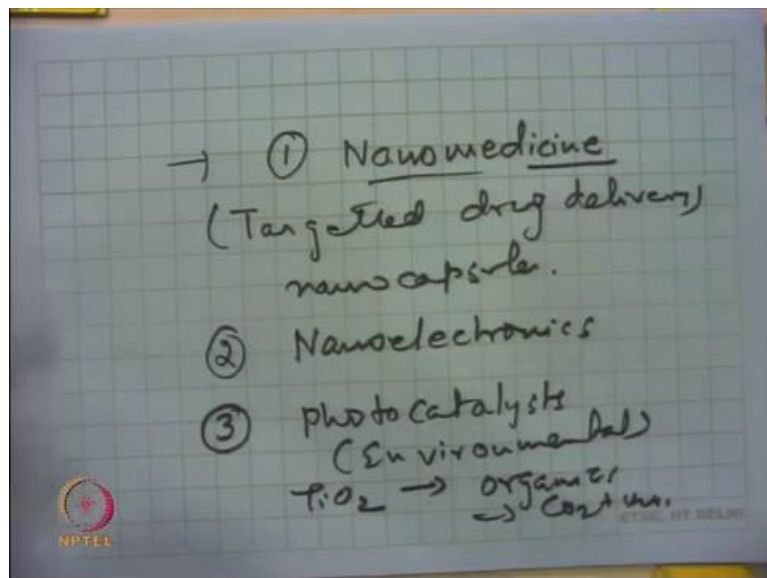 → ① Nanomedicine
(Targetted drug delivery)
nanocapsules.
② Nanoelectronics
③ photocatalysts
(Environmental)
TiO2 → organics
→ CO2 +
ETSC, IIT DELHI
NPTEL